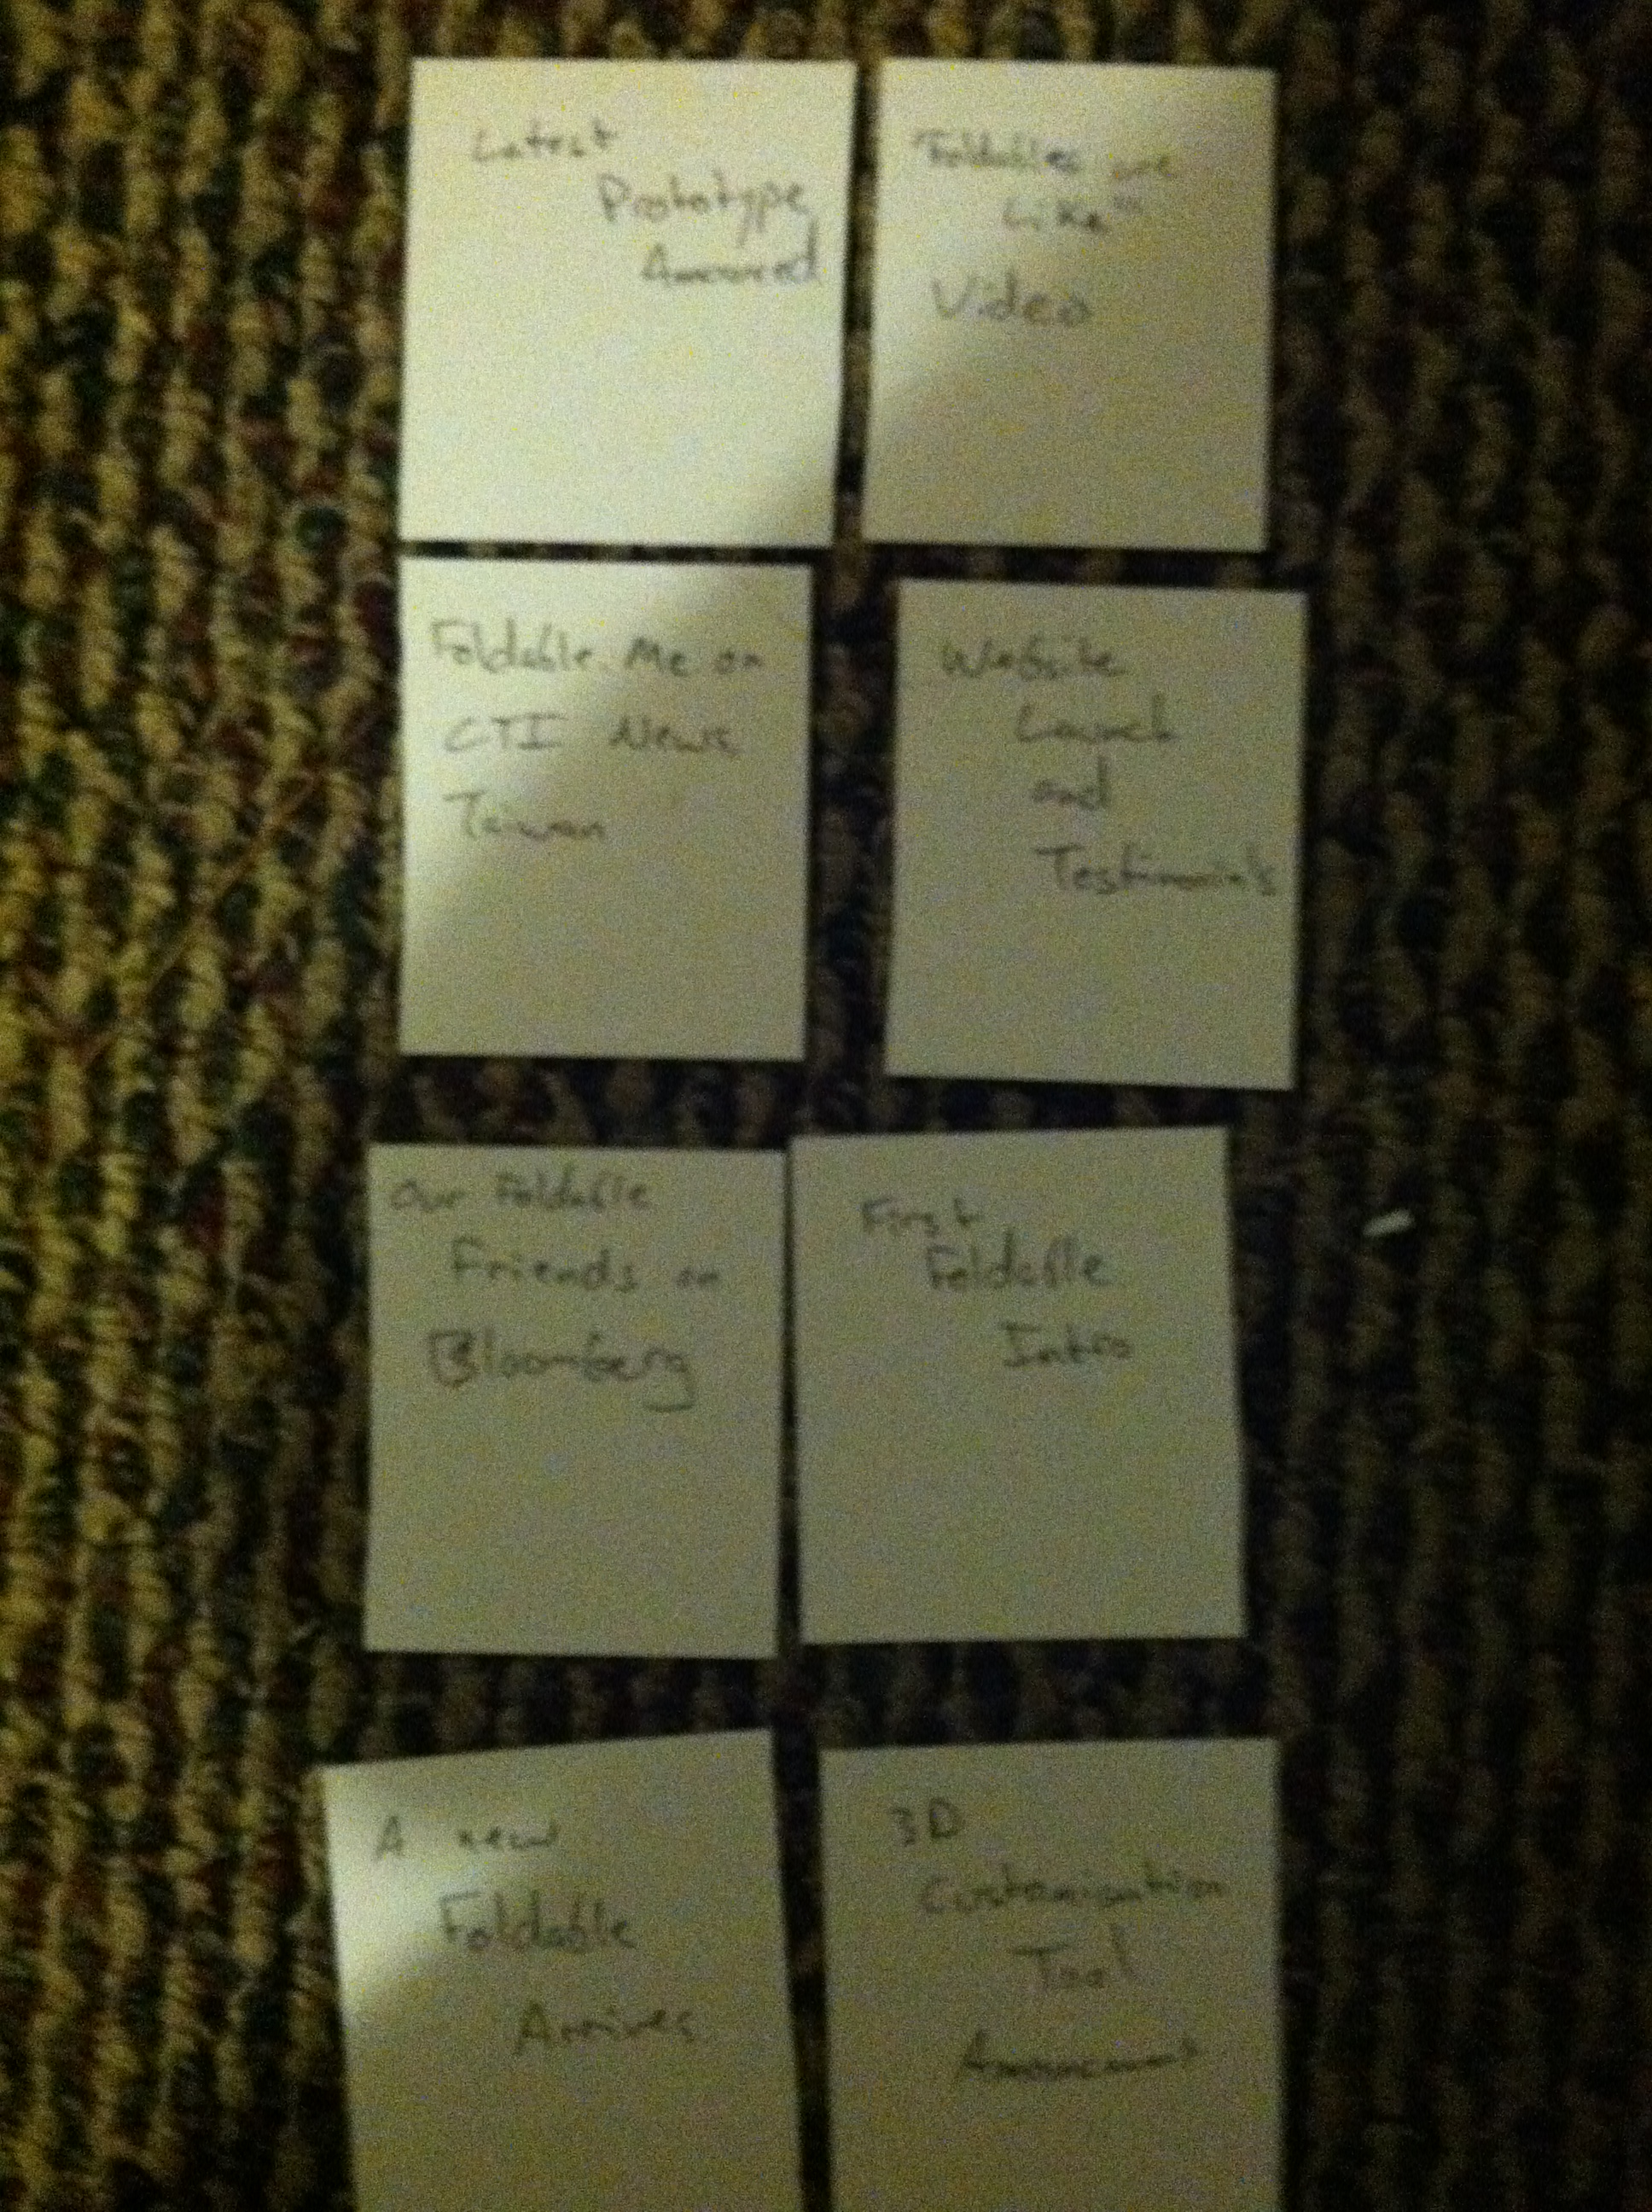 Latest
Prototype
Announced
Foldables are
Like
Video
Foldable Me on
CTI News
Taiwan
Website
Launch
and
Testimonials
Our Foldable
Friends on
Bloomberg
First
Foldable
Intro
A new
Foldable
Arrives
3D
Customisation
Tool